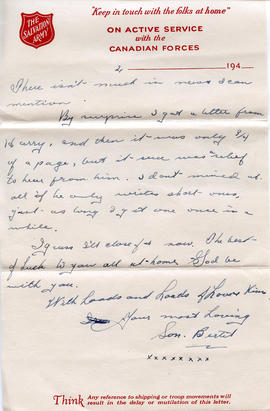 THE
SALVATION
ARMY
"Keep in touch with the folks at home"
ON ACTIVE SERVICE
with the
CANADIAN FORCES
2 194
There isn't much in news I can
mention.
By surprise I got a letter from
Harry, and then it was only 3/4
of a page, but it sure was relief
to hear from him. I don't mind at
all if he only writes short ones,
just as long I get one once in a
while.
I guess I'll close for now. The best
of Luck to you all at home. God be
with you.
With Loads and Loads of Love &
Your most Loving
Son. Bertil
xxxxxxxx
Think Any reference to shipping or troop movements will
result in the delay or mutilation of this letter.